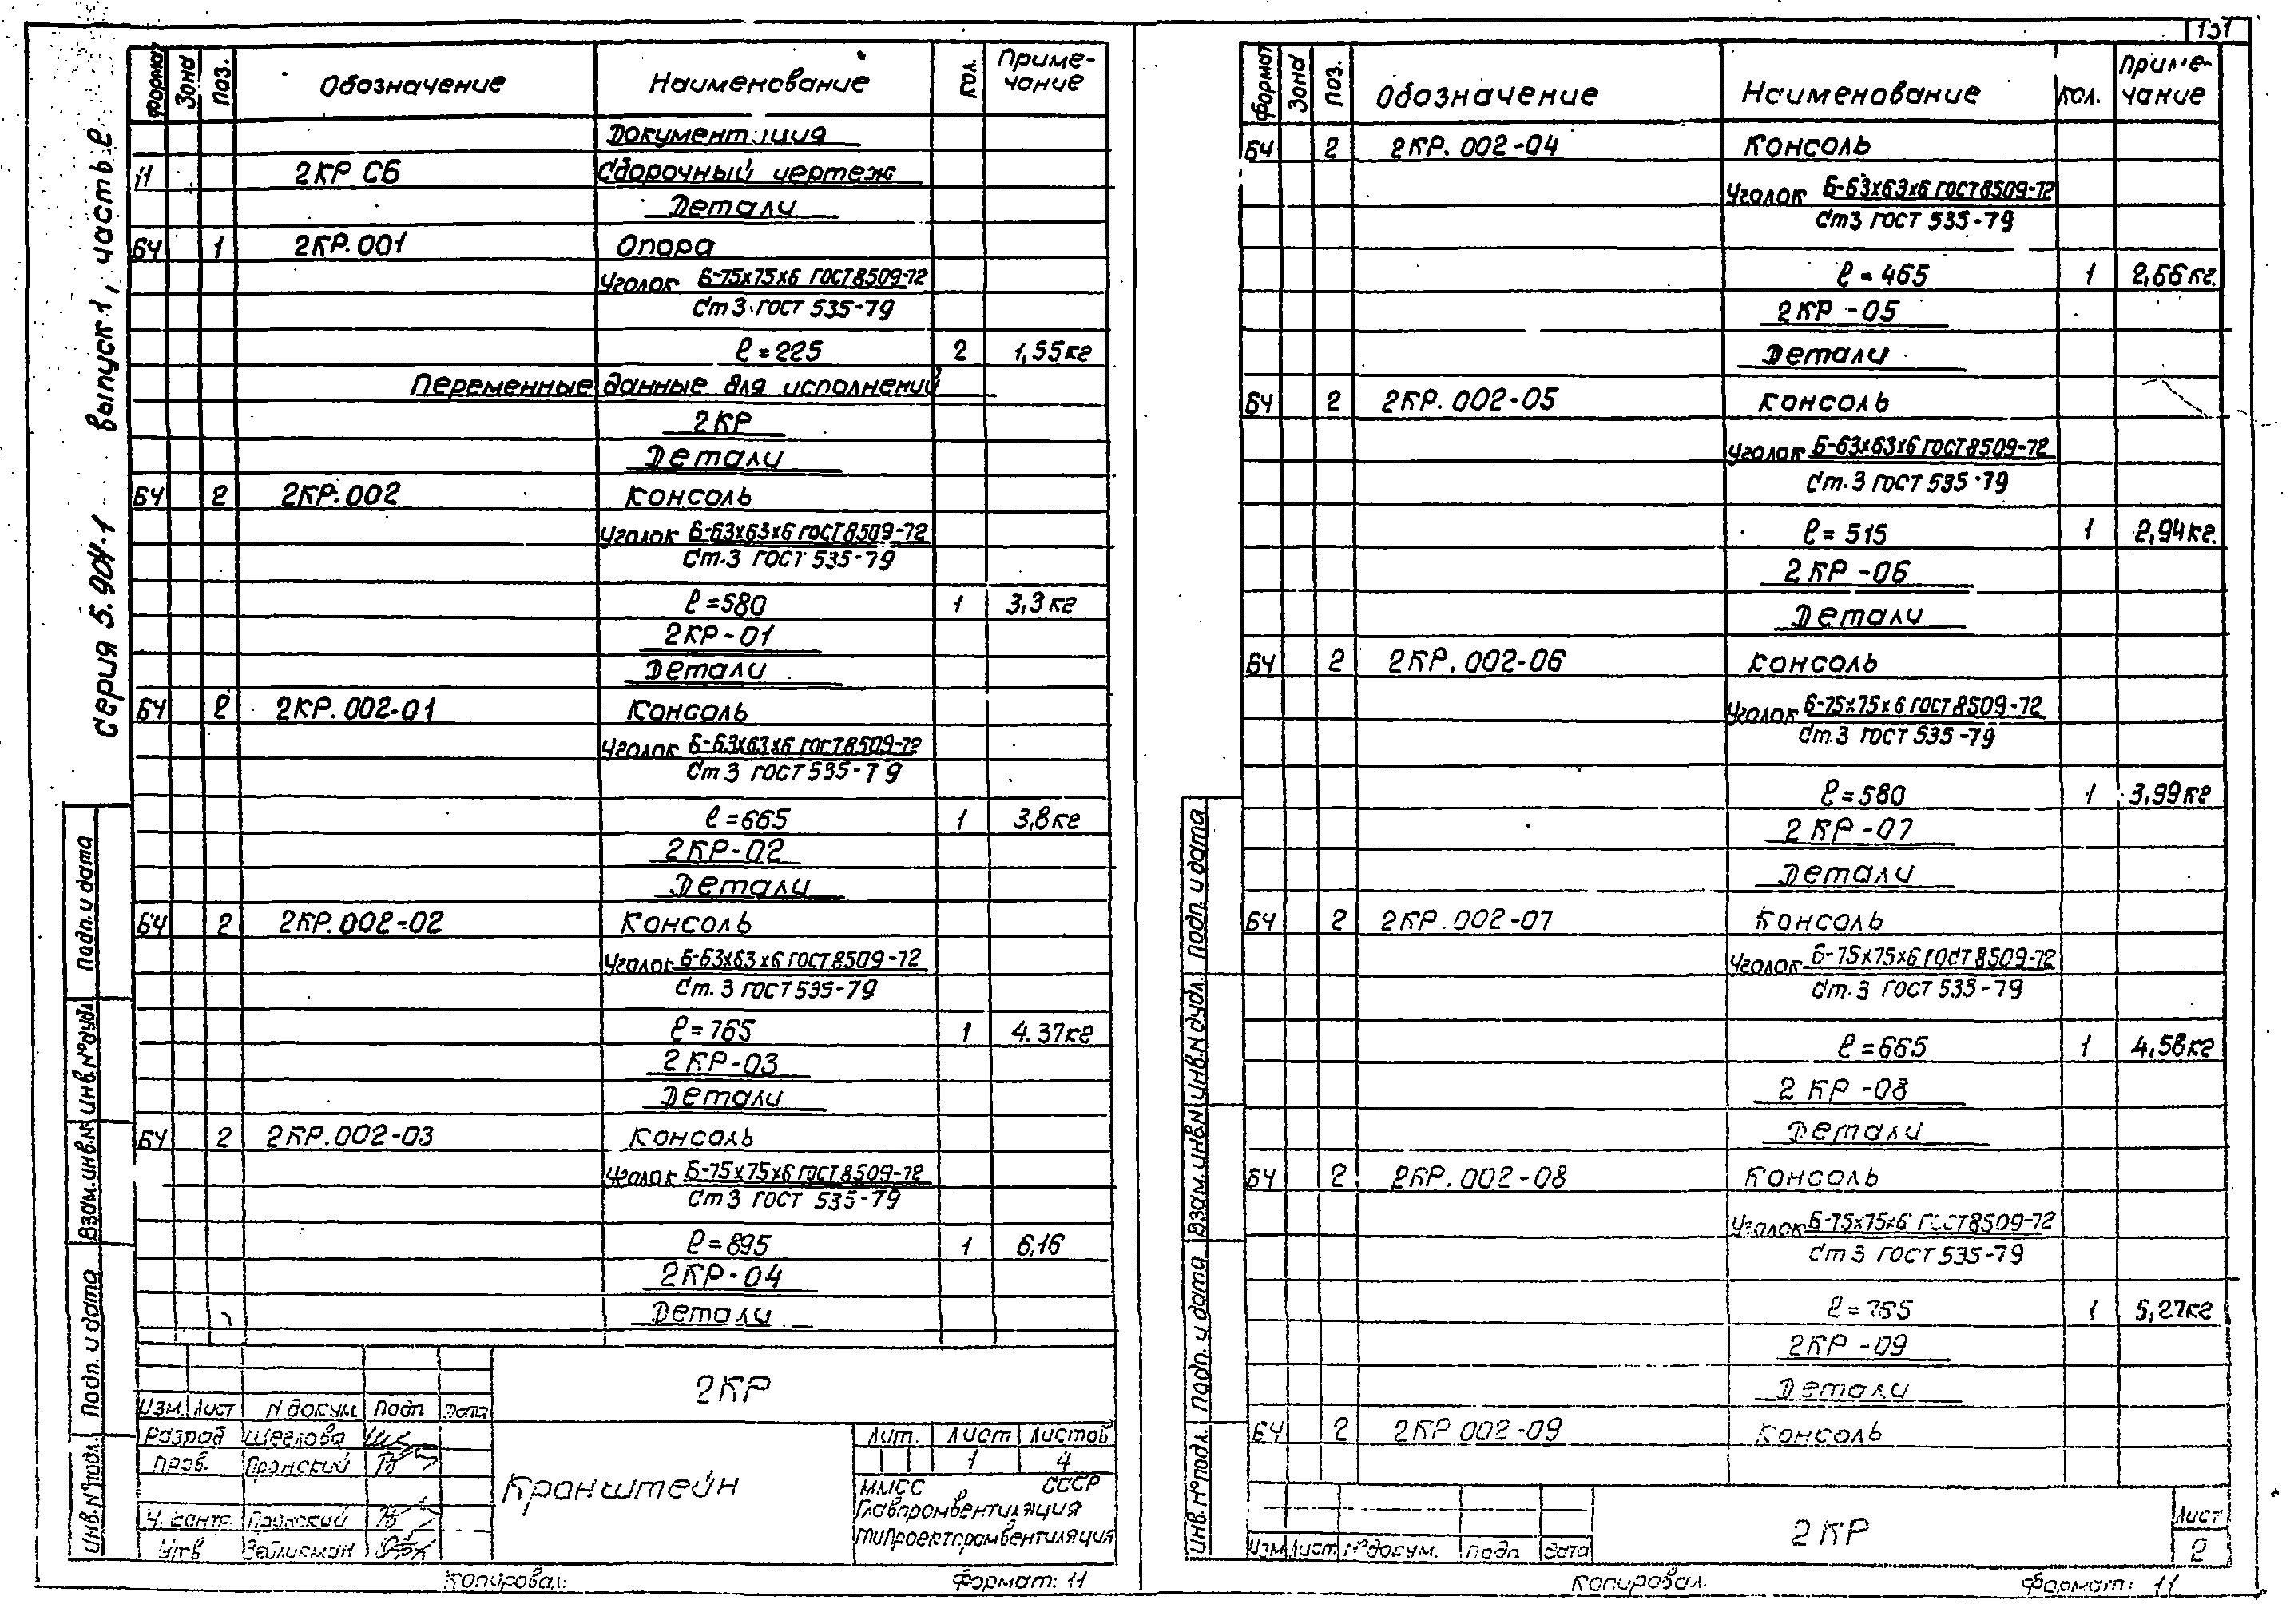 131
серия 5.904-1 выпуск 1, часть 2
Формат Зона Поз. Обозначение Наименование Кол. Приме-
чание
Документация
11 2КР СБ Сборочный чертеж
Детали
БЧ 1 2КР.001 Опора
Уголок Б-75х75х6 ГОСТ 8509-72
Ст 3 ГОСТ 535-79
ℓ=225 2 1,55кг
Переменные данные для исполнений
2КР
Детали
БЧ 2 2КР.002 Консоль
Уголок Б-63х63х6 ГОСТ 8509-72
Ст.3 ГОСТ 535-79
ℓ=580 1 3,3кг
2КР-01
Детали
БЧ 2 2КР.002-01 Консоль
Уголок Б-63х63х6 ГОСТ 8509-72
Ст 3 ГОСТ 535-79
ℓ=665 1 3,8кг
2КР-02
Детали
БЧ 2 2КР.002-02 Консоль
Уголок Б-63х63х6 ГОСТ 8509-72
Ст. 3 ГОСТ 535-79
ℓ=765 1 4.37кг
2КР-03
Детали
БЧ 2 2КР.002-03 Консоль
Уголок Б-75х75х6 ГОСТ 8509-72
Ст 3 ГОСТ 535-79
ℓ=895 1 6,16
2КР-04
Детали
2КР
Изм. Лист N докум. Подп Дата
Разраб Щеглова
Пров. Пронский
Н. контр. Пронский
Утв Зейликман
Кронштейн
Лит. Лист Листов
1 4
ММСС СССР
Главпромвентиляция
Гипроектпромвентиляция
Копировал: Формат: 11
Подп. и дата
Инв. N° дубл.
Взам. инв. N
Подп. и дата
Инв. N° подл.
Формат Зона Поз. Обозначение Наименование Кол. Приме-
чание
БЧ 2 2КР.002-04 Консоль
Уголок Б-63х63х6 ГОСТ 8509-72
Ст 3 ГОСТ 535-79
ℓ=465 1 2,66кг.
2КР-05
Детали
БЧ 2 2КР.002-05 Консоль
Уголок Б-63х63х6 ГОСТ 8509-72
Ст.3 ГОСТ 535-79
ℓ=515 1 2,94кг.
2КР-06
Детали
БЧ 2 2КР.002-06 Консоль
Уголок Б-75х75х6 ГОСТ 8509-72
Ст.3 ГОСТ 535-79
ℓ=580 1 3,99кг
2КР-07
Детали
БЧ 2 2КР.002-07 Консоль
Уголок Б-75х75х6 ГОСТ 8509-72
Ст.3 ГОСТ 535-79
ℓ=665 1 4,58кг
2КР-08
Детали
БЧ 2 2КР.002-08 Консоль
Уголок Б-75х75х6 ГОСТ 8509-72
Ст 3 ГОСТ 535-79
ℓ=765 1 5,27кг
2КР-09
Детали
БЧ 2 2КР 002-09 Консоль
Изм Лист N° докум. Подп Дата
2КР
Лист
2
Копировал. Формат: 11
Подп. и дата
Инв. N дубл.
Взам. инв. N
Подп. и дата
Инв. N° подл.